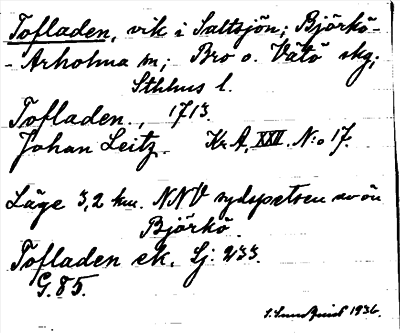 Tofladen, vik i Saltsjön; Björkö-
-Arholma sn; Bro o. Vätö skg;
Sthlms l.
Tofladen., 1713.
Johan Leitz. Kr A, XXII. N:o 17.
Läge 3,2 km. NNV sydspetsen av ön
Björkö.
Tofladen ek. Lj: 233.
G. 85.
1936.